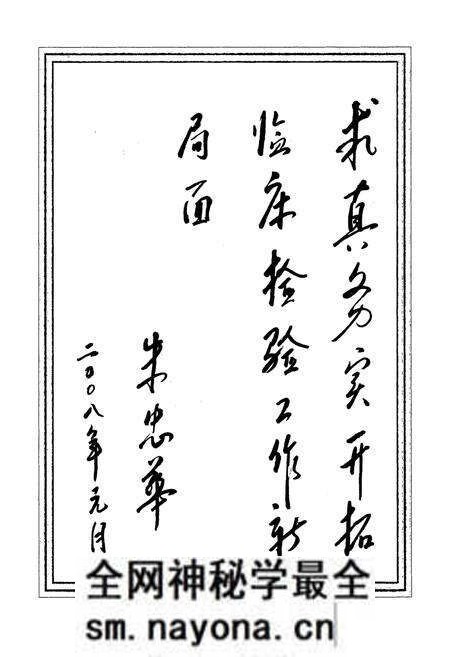 求真务实开拓
临床检验工作新
局面
朱忠华
二〇〇八年元月
全网神秘学最全
sm.nayona.cn